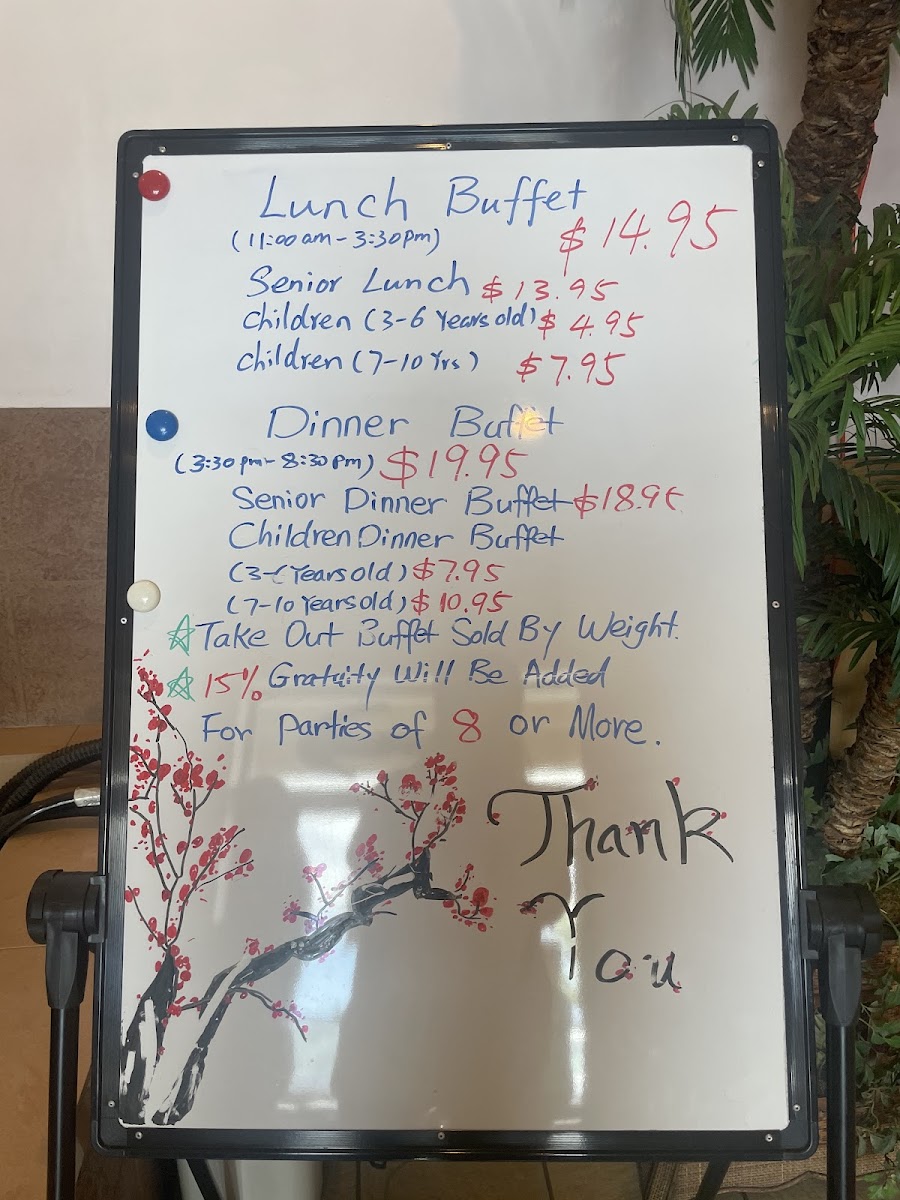 Lunch Buffet
(11:00am-3:30pm) $14.95
Senior Lunch $13.95
Children (3-6 Years old) $4.95
Children (7-10 Yrs) $7.95
Dinner Buffet
(3:30pm-8:30pm) $19.95
Senior Dinner Buffet $18.95
Children Dinner Buffet
(3-6 Years old) $7.95
(7-10 Years old) $10.95
☆ Take Out Buffet Sold By Weight.
☆ 15% Gratuity Will Be Added
For Parties of 8 or More.
Thank
You